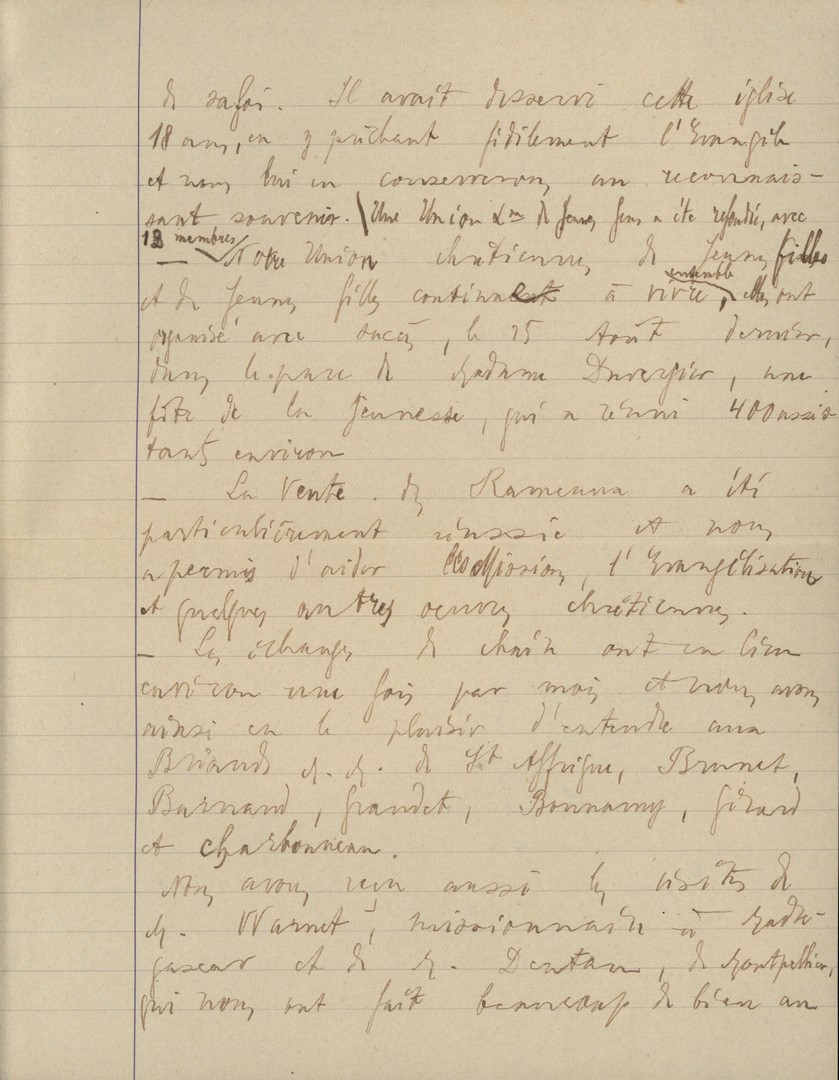 de sa foi. Il avait desservi cette église
18 ans, en y prêchant fidèlement l'Evangile
et nous lui en conserverons un reconnais-
sant souvenir. Une Union Xne de Jeunes Gens a été refondée, avec
12 membres
— Notre Union chrétienne de Jeunes filles
ensemble
et de Jeunes filles continuent à vivre, elles ont
organisé avec succès, le 25 Août dernier,
dans le parc de Madame Duvergier, une
fête de la Jeunesse, qui a réuni 400 assis-
tants environ
— La Vente des Rameaux a été
particulièrement réussie et nous
a permis d'aider les Missions, l'Evangélisation
et quelques autres oeuvres chrétiennes.
— Les échanges de chaire ont eu lieu
environ une fois par mois et nous avons
ainsi eu le plaisir d'entendre aux
M. M. de St Affrique, Brunet,
Barnaud, Grandet, Bonnamy, Gérard
et Charbonneau.
Nous avons reçu aussi les visites de
M. Warnet, missionnaire à Mada-
gascar et de M. Dautam, de Montpellier,
qui nous ont fait beaucoup de bien au